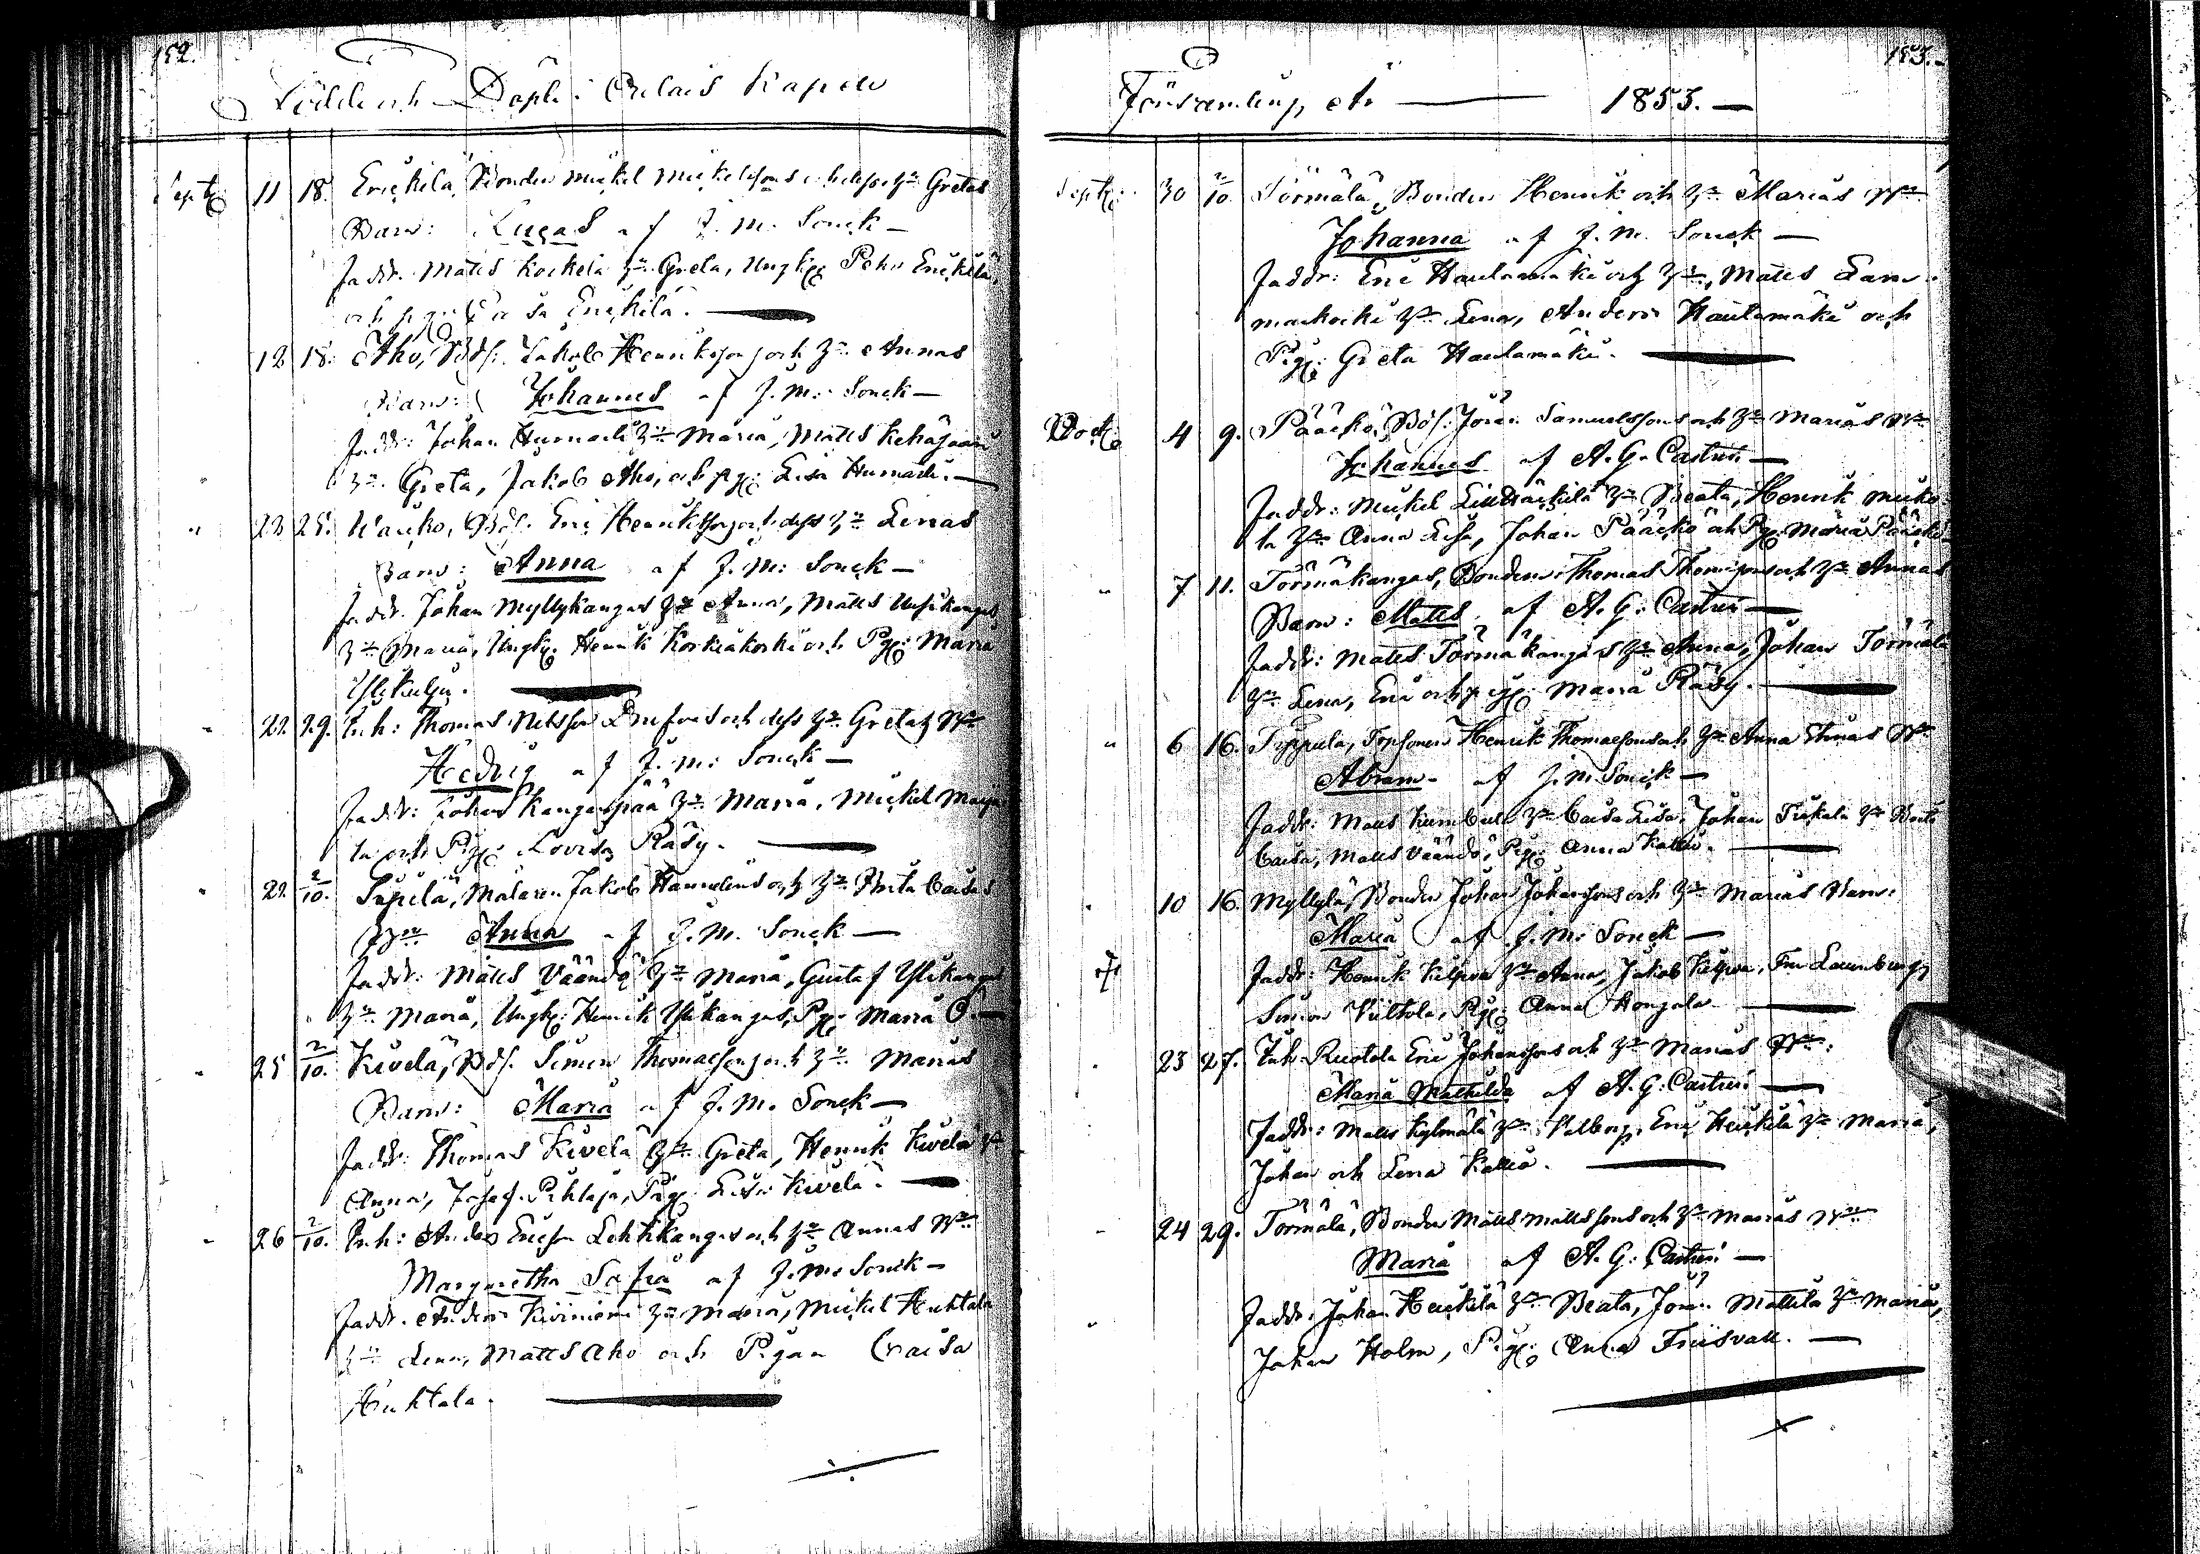 152.
Födde och Döpte i Oulais Kapell
Septb 11 18. Erickilä, Bonden Mickel Mickelssons och dess h:u Gretas
Barn: Lucas af J. M. Sonck —
Fadd. Matts Koskela h:u Greta, Ungk: Pehr Erickilä,
och pig: Caisa Erickilä. —
12 18. Aho, Bds: Jakob Henriksson och h:u Annas
Barn: Johannes af J. M. Sonck —
Fadd: Johan h:u Maria, Matts
h:u Greta, Jakob Aho, och pig: Lisa —
" 22 25. Bds: Eric Henriksson och dess h:u Lenas
Barn: Anna af J. M: Sonck —
Fadd. Johan Myllykangas h:u Anna, Matts
h:u Maria, Ungk: Henrik Korkiakoski och Pig: Maria
" 22. 29. Inh: Thomas Nilsson och dess h:u Gretas B:n
Hedvig af J. M: Sonck —
Fadd: Johan Kangaspää h:u Maria, Mickel Marja
la och Pig: Lovisa Räsy. —
" 22. 2/10. Sipilä, Målaren Jakob och h:u Brita Caisas
B:n Anna af J. M. Sonck —
Fadd: Matts Väändö h:u Maria, Gustaf Ylikangas
h:u Maria, Ungk: Henrik Ylikangas, Pig: Maria D:o —
" 25 2/10. Kivelä, Bds. Simon Thomasson och h:u Marias
Barn: Maria af J. M. Sonck —
Fadd: Thomas Kivelä h:u Greta, Henrik Kivelä h:u
Anna, Josef Pihlaja, Pig: Lisa Kivelä. —
" 26 2/10. Inh: Anders Ericsson Lehtikangas och h:u Annas B:n
Margaretha Sofia af J. M: Sonck —
Fadd. Anders Kiviniemi h:u Maria, Mickel Huhtala
h:u Lena, Matts Aho och Pigan Caisa
Huhtala. —
153.
Församling, År — 1853. —
Septb: 30 2/10. Törmälä, Bonden Henrik och h:u Marias B:n
Johanna af J. M. Sonck —
Fadd: Eric Hautamäki och h:u, Matts Lam
minkoski h:u Lena, Anders Hautamäki och
Pig: Greta Hautamäki. —
Octb 4 9. Pääckö, Bds: Jöran Samuelsson och h:u Marias B:n
Johannes af A. G. Castrén —
Fadd: Mickel h:u Beata, Henrik Micko
la h:u Anna Lisa, Johan Pääckö och Pig: Maria Pääckö
" 7 11. Törmäkangas, Bonden Thomas Thomasson och h:u Annas
Barn: Matts af A. G: Castrén —
Fadd: Matts Törmäkangas h:u Anna, Johan Törmälä
h:u Lena, Eric och pig: Maria Räsy. —
" 6 16. Typpula, Torparen Henrik Thomasson och h:u Anna Stinas B:n
Abram af J. M. Sonck —
Fadd: Matts h:u Caisa Lisa, Johan h:u Brita
Caisa, Matts Väändö, Pig: Anna Kallio. —
" 10 16. Myllylä, Bonden Johan Johansson och h:u Marias Barn:
Maria af J. M: Sonck —
Fadd: Henrik Kilpua h:u Anna, Jakob Kilpua, Fru
Simon Viitola, Pig: Anna Hongala —
" 23 27. Inh. Ruotola Eric Johansson och h:u Marias B:n:
Maria Mathilda af A. G: Castrén —
Fadd: Matts Kylmälä h:u Valborg, Eric Heickilä h:u Maria,
Johan och Lena Kallio. —
" 24 29. Törmälä, Bonden Matts Mattsson och h:u Marias B:n
Maria af A. G: Castrén —
Fadd: Johan Heickilä h:u Beata, Jöran Mattila h:u Maria,
Johan Holm, Pig: Anna Friisvall. —